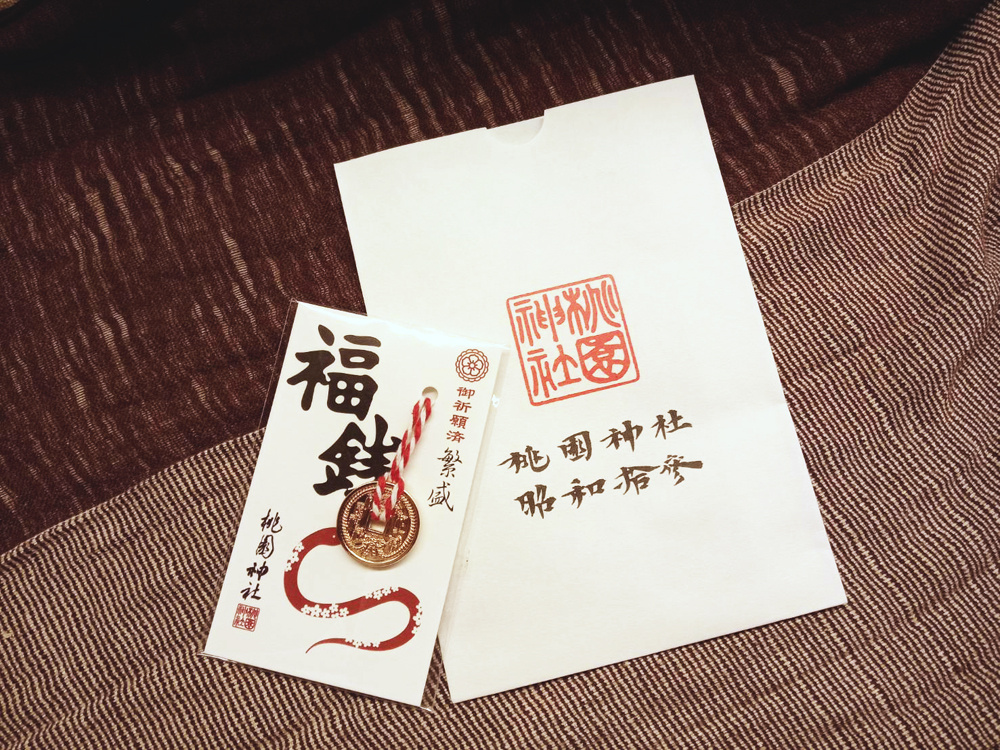 福
銭
御祈願済
繁盛
桃園神社
桃園神社
桃園神社
昭和拾參